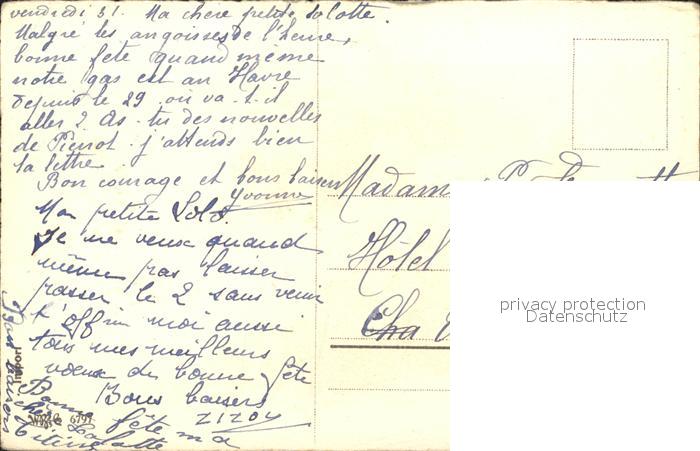 vendredi 31. Ma chere petite Lolotte.
Malgré les angoisses de l'heure,
bonne fete quand même
notre gas est au Havre
depuis le 29. où va-t-il
aller ? As-tu des nouvelles
de Pierrot. j'attends bien
ta lettre.
Bon courage et bons baisers
Yvonne
Ma petite Lolo.
Je ne veux quand
même pas laisser
passer le 2 sans venir
t'offrir moi aussi
tous mes meilleurs
voeux de bonne fête
Bons baisers
ZIZOU
Bonne fête ma
chère
Lolotte
Gros baisers
Titine
Import
6797
Madame
Hôtel
Cha
privacy protection
Datenschutz